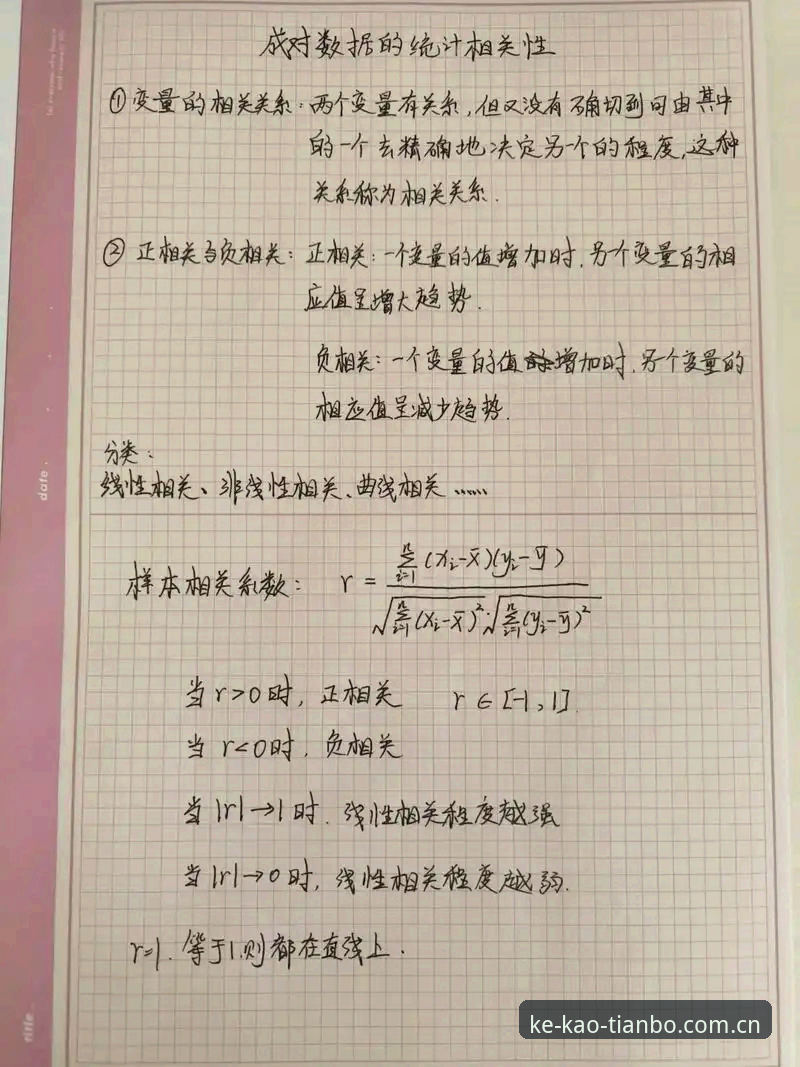 成对数据的统计相关性
①变量的相关关系：两个变量有关系，但又没有确切到可由其中
的一个去精确地决定另一个的程度，这种
关系称为相关关系．
② 正相关与负相关：正相关：一个变量的值增加时，另一个变量的相
应值呈增大趋势．
负相关：一个变量的值增加时，另一个变量的
相应值呈减少趋势．
分类：
线性相关、非线性相关、曲线相关……
样本相关系数： r = \frac{\sum_{i=1}^{n}(x_i-\bar{x})(y_i-\bar{y})}{\sqrt{\sum_{i=1}^{n}(x_i-\bar{x})^2}\cdot\sqrt{\sum_{i=1}^{n}(y_i-\bar{y})^2}}
当 r>0时，正相关 r∈[-1,1]
当 r<0时，负相关
当 |r|→1时．线性相关程度越强
当 |r|→0时，线性相关程度越弱．
r=1．等于1．则都在直线上．
date.
title.
ke-kao-tianbo.com.cn